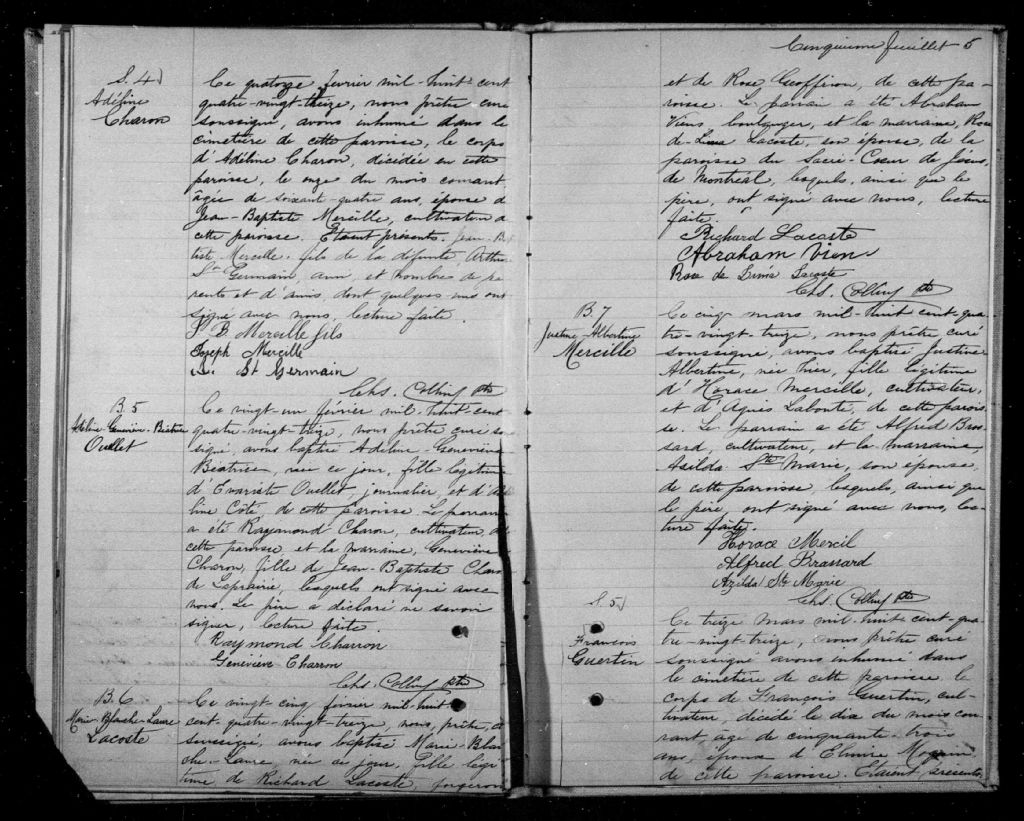 S. 4
Adéline
Charon
Ce quatorze février mil-huit-cent
quatre-vingt-treize, nous prêtre curé
soussigné, avons inhumé dans le
cimetière de cette paroisse, le corps
d'Adéline Charon, décédée en cette
paroisse, le onze du mois courant
âgée de soixante-quatre ans, épouse de
Jean-Baptiste Mercille, cultivateur de
cette paroisse. Etaient présents. Jean-Bap
tiste Mercille. fils de la défunte Arthur
St Germain, ami, et nombres de pa
rents et d'amis, dont quelques uns ont
signé avec nous, lecture faite.
J. B. Mercille fils
Joseph Mercille
St Germain
Chs. Collin ptre
B. 5
Adéline-Geneviève-Béatrice
Ouellet
Ce vingt-un février mil-huit-cent
quatre-vingt-treize, nous prêtre curé sous
signé, avons baptisé Adeline-Geneviève
Béatrice, née ce jour, fille légitime
d'Evariste Ouellet, journalier, et d'Adé
line Coté, de cette paroisse. Le parrain
a été Raymond Charon, cultivateur, de
cette paroisse et la marraine, Geneviève
Charon, fille de Jean-Baptiste Charon
de Laprairie, lesquels ont signé avec
nous. Le père a déclaré ne savoir
signer, lecture faite.
Raymond Charron
Geneviève Charron
Chs. Collin ptre
B. 6
Marie-Blanche-Laure
Lacoste
Ce vingt-cinq février mil-huit
cent-quatre-vingt-treize, nous, prêtre,
soussigné, avons baptisé Marie-Blan
che-Laure, née ce jour, fille légi
time de Richard Lacoste, forgeron
Cinquième feuillet 5
et de Rose Geoffrion, de cette pa-
roisse. Le parrain a été Abraham
Viens boulanger, et la marraine, Rose
de-Lima Lacoste, son épouse, de la
paroisse du Sacré-Coeur de Jésus,
de Montréal, lesquels, ainsi que le
père, ont signé avec nous, lecture
faite.
Richard Lacoste
Abraham Vien
Rose de Lima Lacoste
Chs. Collin ptre
B. 7
Justine-Albertine
Mercille
Ce cinq mars mil-huit-cent-qua
tre-vingt-treize, nous prêtre curé
soussigné, avons baptisé Justine
Albertine, née hier, fille légitime
d'Horace Mercille, cultivateur,
et d'Agnès Labonté, de cette parois
se. Le parrain a été Alfred Bros
sard, cultivateur, et la marraine,
Asilda Ste Marie, son épouse,
de cette paroisse, lesquels, ainsi que
le père, ont signé avec nous, lec
ture faite.
Horace Mercil
Alfred Brassard
Azilda Ste Marie
Chs. Collin ptre
S. 5
Francois
Guertin
Ce treize mars mil-huit-cent-qua
tre-vingt-treize, nous prêtre curé
soussigné avons inhumé dans
le cimetière de cette paroisse le
corps de François Guertin, cul-
tivateur, décédé le dix du mois cou
rant, âgé de cinquante-trois
ans, époux d'Elmire
de cette paroisse. Etaient présents,